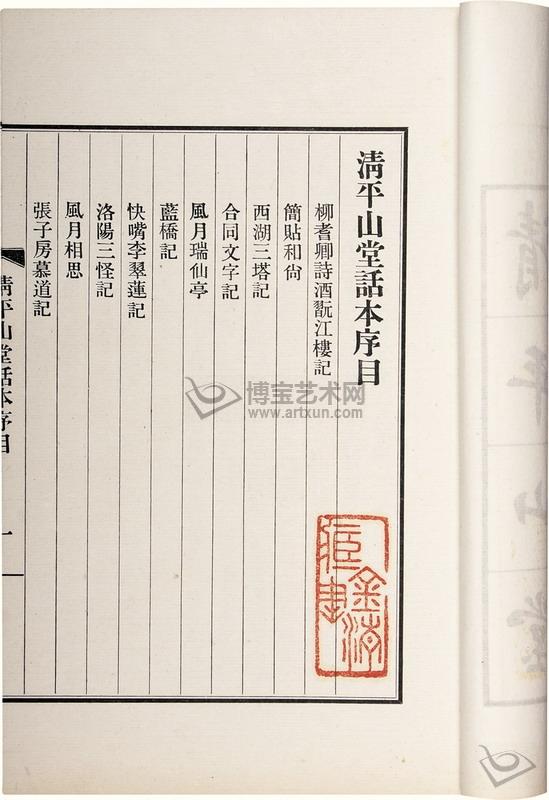 清平山堂話本序目
柳耆卿詩酒翫江樓記
簡貼和尙
西湖三塔記
合同文字記
風月瑞仙亭
藍橋記
快嘴李翠蓮記
洛陽三怪記
風月相思
張子房慕道記
清平山堂話本序目
一
博宝艺术网
www.artxun.com